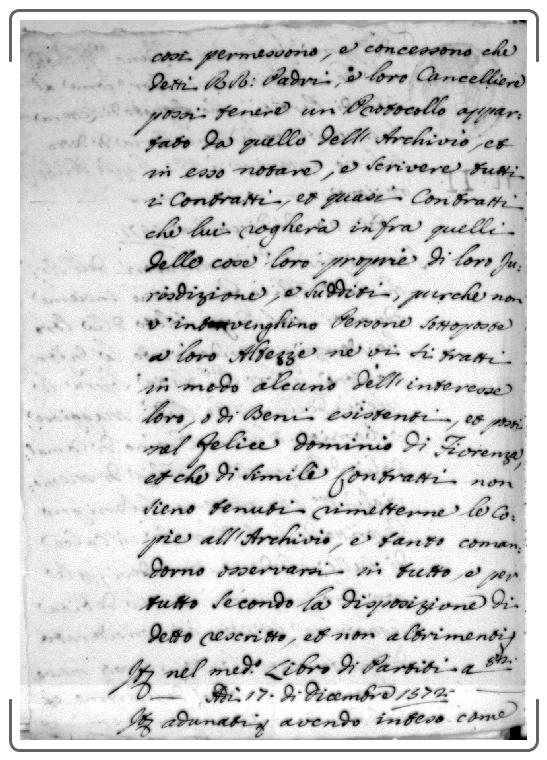 così permessono, e concessono che
detti RR: Padri, e loro Cancelliere
possi tenere un Protocollo appar:
tato da quello dell'Archivio, et
in esso notare, e scrivere tutti
i Contratti, et quasi Contratti
che lui rogherà infra quelli
delle cose loro proprie di loro Ju:
risdizione, e sudditi, purche non
v'intervenghino Persone sottoposte
a loro Altezze ne vi si tratti
in modo alcuno dell'interesse
loro, o di Beni esistenti, et posti
nel felice dominio di Fiorenza,
et che di simile Contratti non
sieno tenuti rimetterne le Co:
pie all'Archivio, e tanto coman:
dorno osservarsi in tutto, e per
tutto secondo la disposizione di
detto rescritto, et non altrimenti
nel med.º Libro di Partiti a
Adì 17. di dicembre 1572:
adunati avendo inteso come